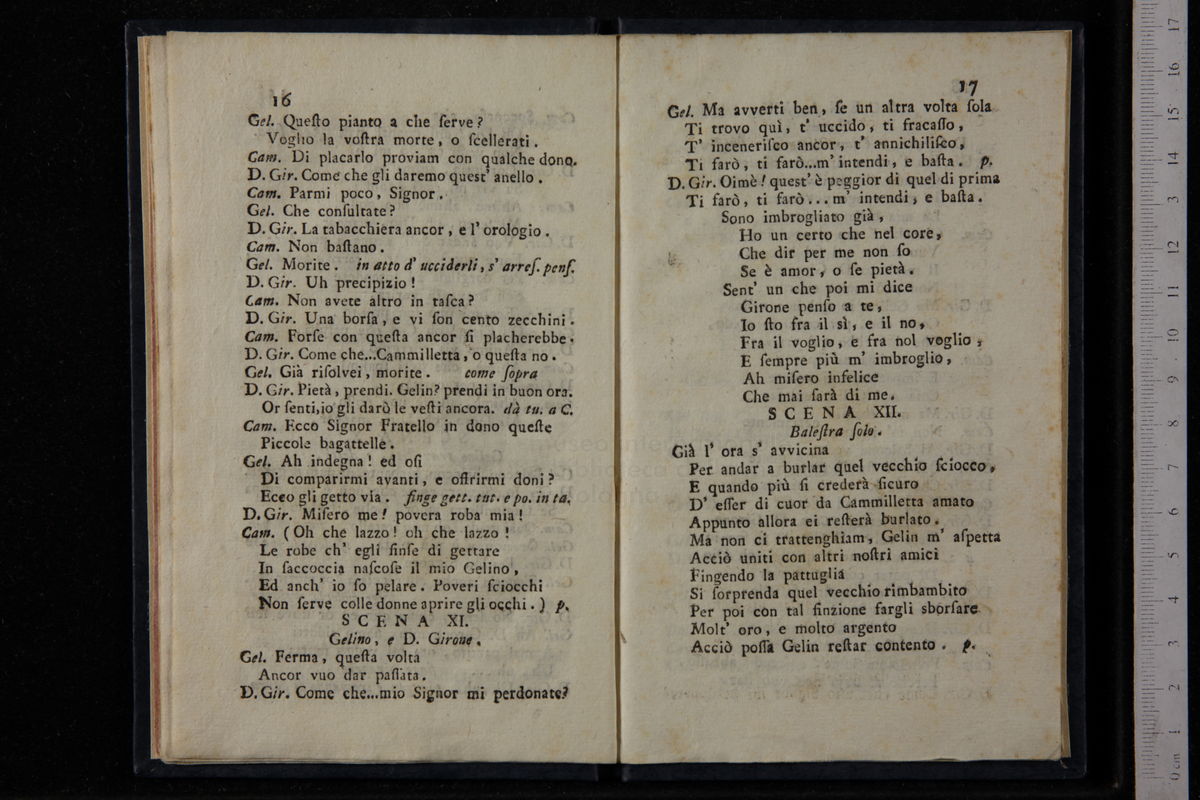 16
Gel. Queſto pianto a che ſerve?
Voglio la voſtra morte, o ſcellerati.
Cam. Di placarlo proviam con qualche dono.
D. Gir. Come che gli daremo quest' anello.
Cam. Parmi poco, Signor.
Gel. Che conſultate?
D. Gir. La tabacchiera ancor, e l' orologio.
Cam. Non baſtano.
Gel. Morite. in atto d' ucciderli, s' arreſ. penſ.
D. Gir. Uh precipizio!
Cam. Non avete altro in taſca?
D. Gir. Una borſa, e vi ſon cento zecchini.
Cam. Forſe con queſta ancor ſi placherebbe.
D. Gir. Come che...Cammilletta, o queſta no.
Gel. Già riſolvei, morite. come ſopra
D. Gir. Pietà, prendi. Gelin? prendi in buon ora.
Or ſenti, io gli darò le veſti ancora. dà tu. a C.
Cam. Ecco Signor Fratello in dono queſte
Piccole bagattelle.
Gel. Ah indegna! ed oſi
Di comparirmi avanti, e offrirmi doni?
Ecco gli getto via. finge gett. tut. e po. in ta.
D. Gir. Miſero me! povera roba mia!
Cam. (Oh che lazzo! oh che lazzo!
Le robe ch' egli finſe di gettare
In ſaccoccia naſcoſe il mio Gelino,
Ed anch' io ſo pelare. Poveri ſciocchi
Non ſerve colle donne aprire gli occhi.) p.
SCENA XI.
Gelino, e D. Girone.
Gel. Ferma, queſta volta
Ancor vuo dar paſſata.
D. Gir. Come che...mio Signor mi perdonate?
17
Gel. Ma avverti ben, ſe un altra volta ſola
Ti trovo quì, t' uccido, ti fracaſſo,
T' inceneriſco ancor, t' annichiliſco,
Ti farò, ti farò...m' intendi, e baſta. p.
D. Gir. Oimè! quest' è peggior di quel di prima
Ti farò, ti farò... m' intendi, e baſta.
Sono imbrogliato già,
Ho un certo che nel core,
Che dir per me non ſo
Se è amor, o ſe pietà.
Sent' un che poi mi dice
Girone penſo a te,
Io ſto fra il sì, e il no,
Fra il voglio, e fra nol voglio,
E ſempre più m' imbroglio,
Ah miſero infelice
Che mai ſarà di me.
SCENA XII.
Baleſtra ſolo.
Già l' ora s' avvicina
Per andar a burlar quel vecchio ſciocco,
E quando più ſi crederà ſicuro
D' eſſer di cuor da Cammilletta amato
Appunto allora ei reſterà burlato.
Ma non ci trattenghiam, Gelin m' aſpetta
Acciò uniti con altri noſtri amici
Fingendo la pattuglia
Si ſorprenda quel vecchio rimbambito
Per poi con tal finzione fargli sborſare
Molt' oro, e molto argento
Acciò poſſa Gelin reſtar contento. p.